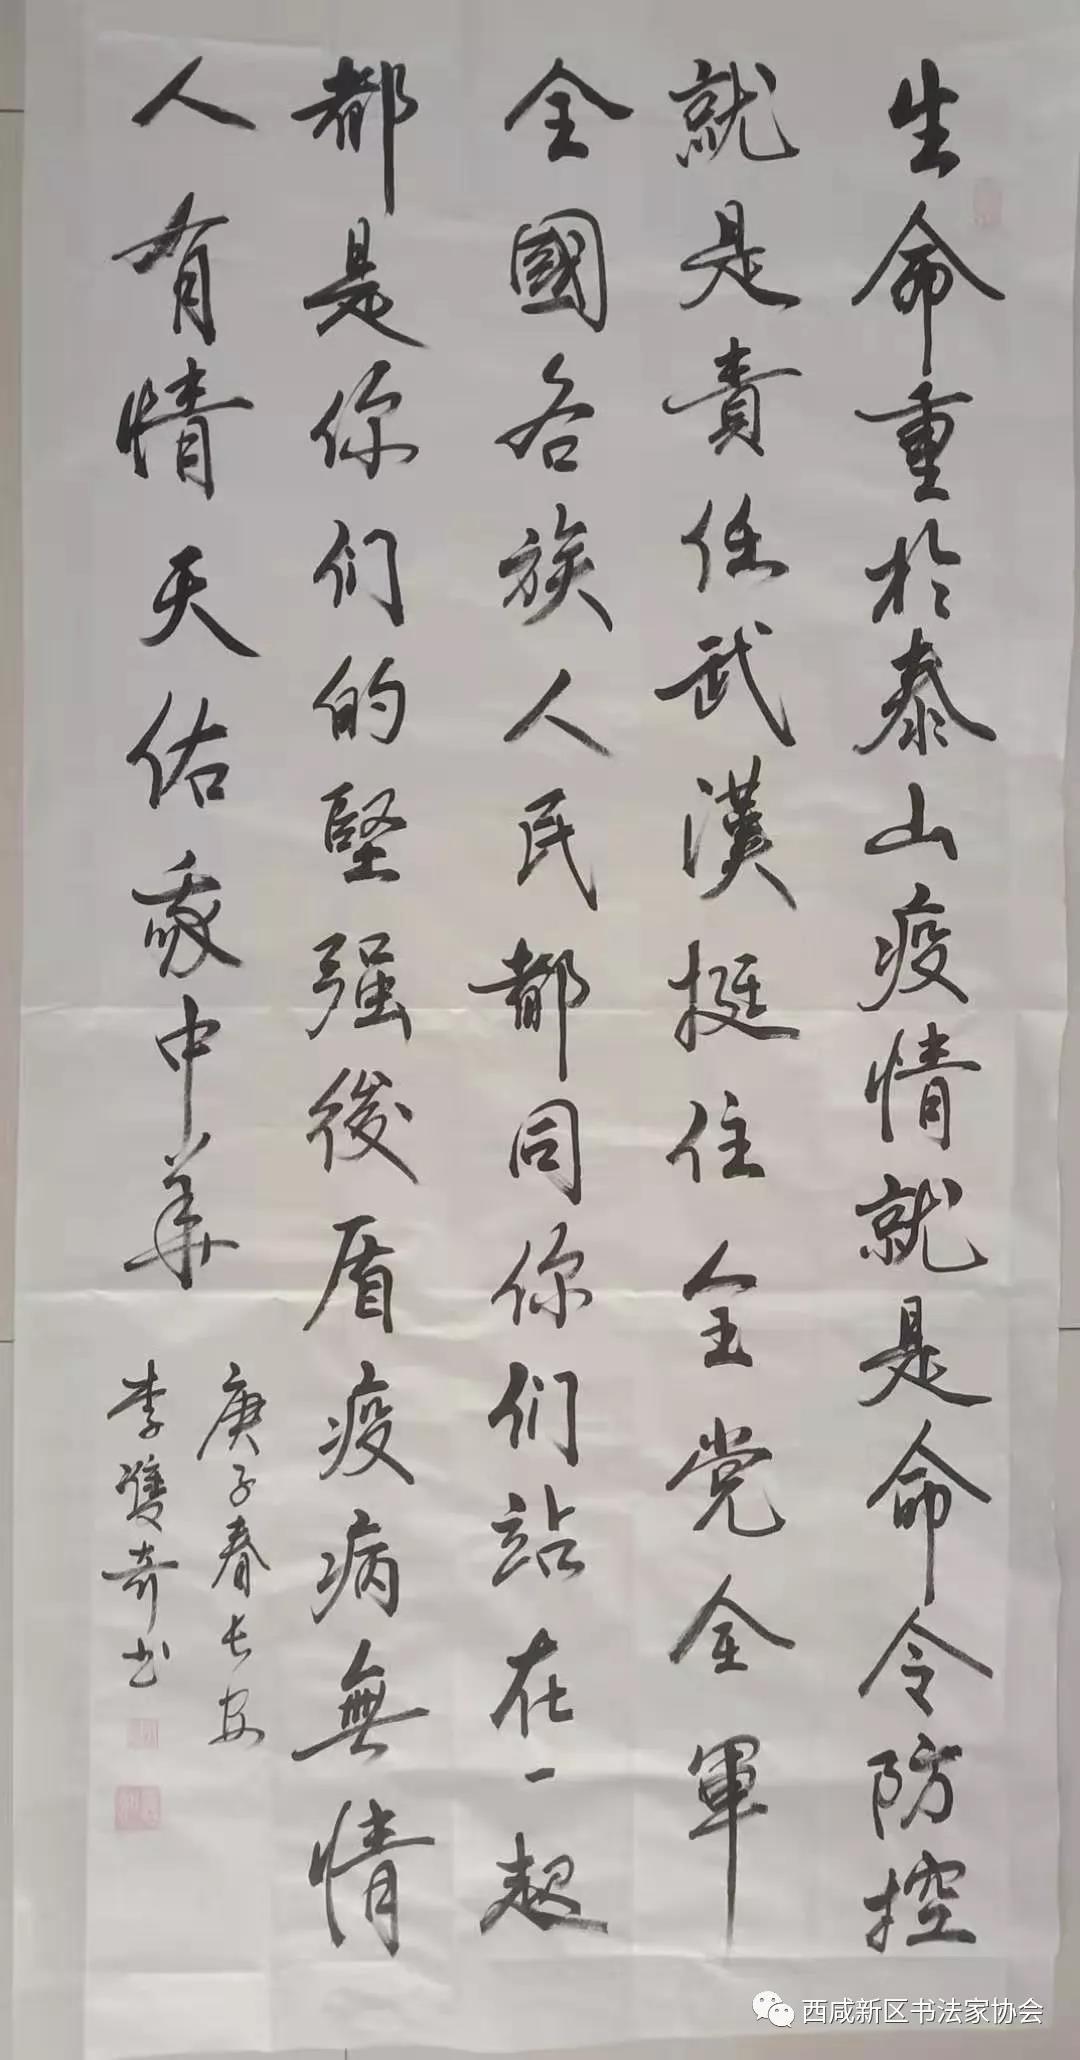 生命重於泰山疫情就是命令防控
就是責任武漢挺住全党全軍
全國各族人民都同你们站在一起
都是你们的堅强後盾疫病無情
人有情天佑我中華
庚子春长安
李雙奇书
西咸新区书法家协会